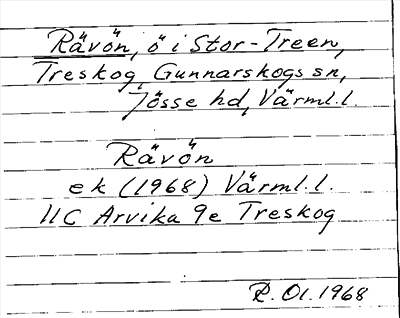 Rävön, ö i Stor-Treen,
Treskog, Gunnarskogs sn,
Jösse hd, Värml.l.
Rävön
ek (1968) Värml.l.
11C Arvika 9e Treskog
R. Ol. 1968